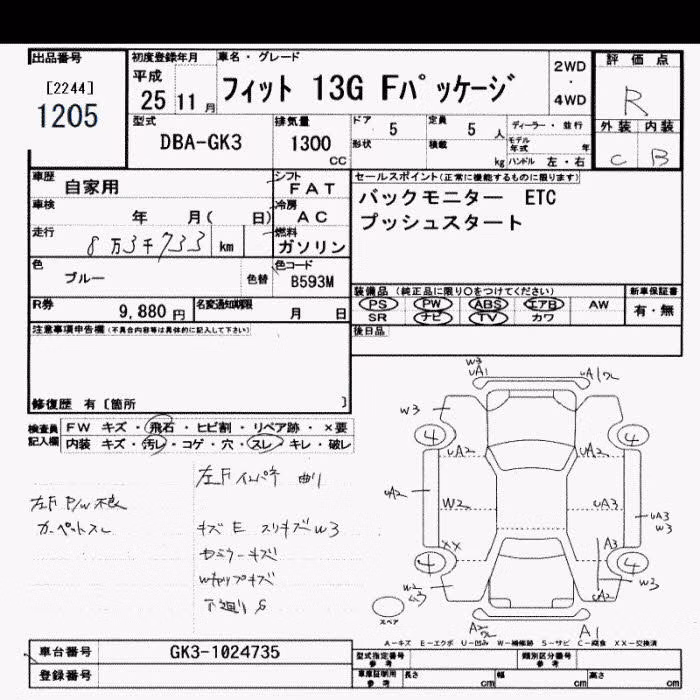 出品番号
[2244]
1205
初度登録年月
平成
25 11 月
車名・グレード
フィット 13G Fパッケージ
2WD
・
4WD
評価点
R
外装 内装
C B
型式
DBA-GK3
排気量
1300
CC
ドア 5
定員 5 人
ディーラー・並行
形状
積載 kg
モデル年式 年
ハンドル 左・右
車歴 自家用
シフト FAT
車検 年 月( 日)
冷房 AC
走行 8万3千733 km
燃料 ガソリン
色 ブルー 色替
色コード B593M
R券 9,880 円
名変通知期限 月 日
セールスポイント(正常に機能するものに限ります)
バックモニター ETC
プッシュスタート
装備品(純正品に限り○をつけてください)
PS PW ABS エアB AW
SR ナビ TV カワ
新車保証書
有・無
後日品
注意事項申告欄(不具合内容等は具体的に記入して下さい)
修復歴 有〔箇所 〕
検査員記入欄
FW キズ・飛石・ヒビ割・リペア跡・×要
内装 キズ・汚レ・コゲ・穴・スレ・キレ・破レ
左F インパネ 曲り
左F P/W不良
カーペットスレ
キズ E スリキズW3
下廻りS
W3 UA1
W3
4
4
UA2
UA2
UA2
W2
UA3
UA3
W3
XX
A3
4
4
W3
W2
A2
A1
スペア
A-キズ E-エクボ U-凹み W-補修跡 S-サビ C-腐食 XX-交換済
車台番号 GK3-1024735
登録番号
型式指定番号 参考
類別区分番号 参考
車庫証明用 参考
長さ cm
幅 cm
高さ cm